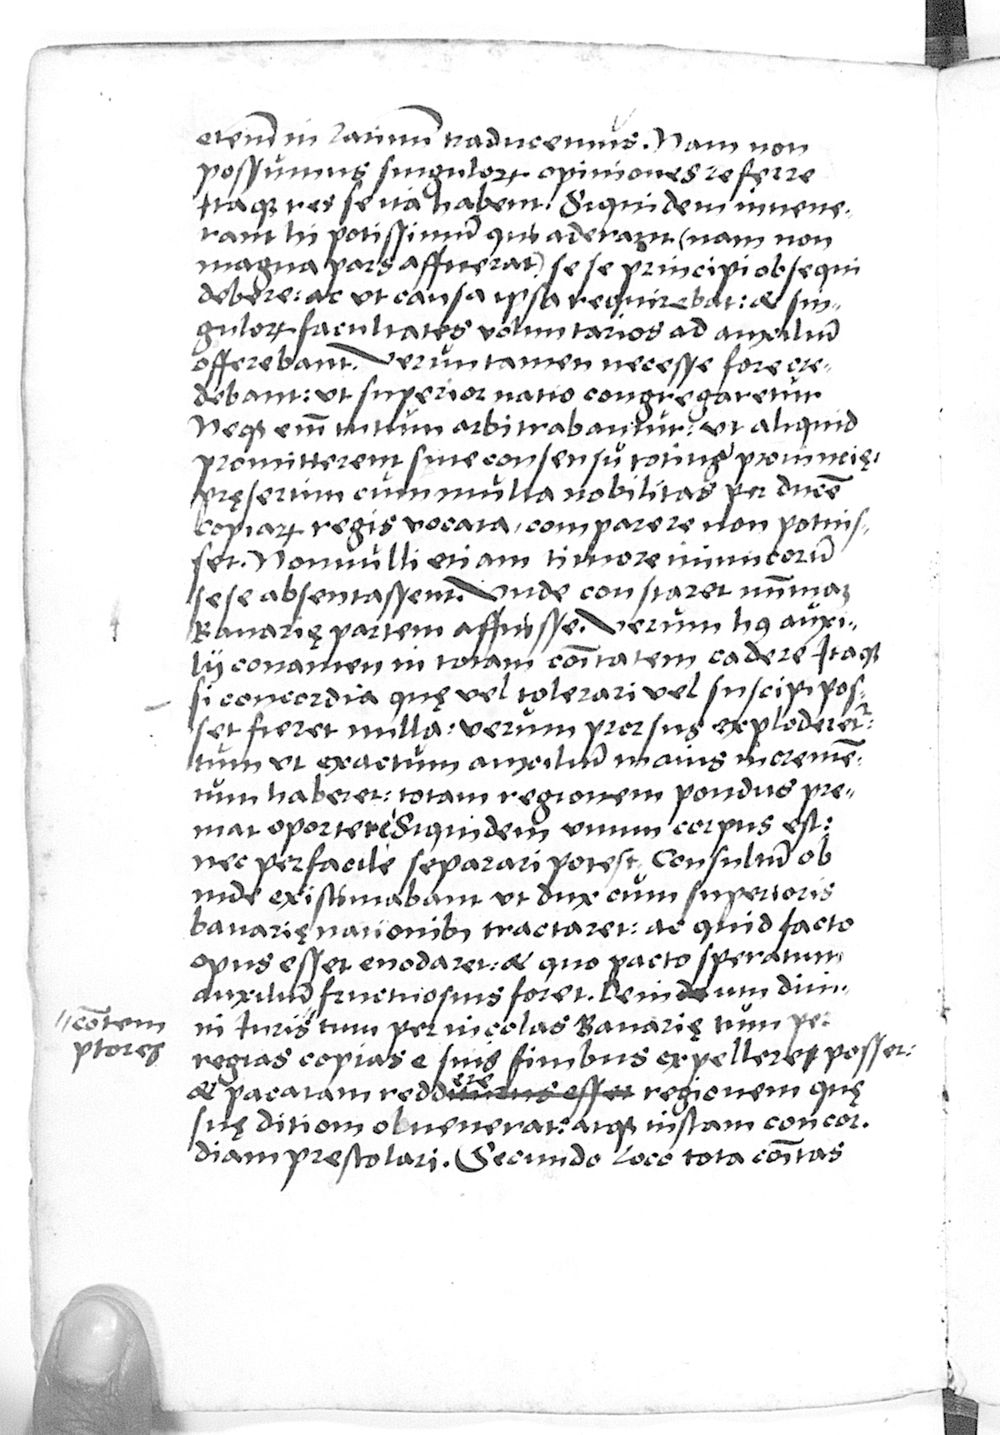 etenĩ in latinũ traducemus. Nam non
possumus singulorꝝ opiniones referre
Itaqꝫ res se ita habent. Siquidem invene-
rant hi potissimũ qui aderant (nam non
magna pars affuerat) se se principi obsequi
debere: ac ut causa ipsa requirebat: & sin-
gulorꝝ facultates voluntarios ad auxiliũ
offerebant. Veruntamen necesse fore cre-
debant: ut superior natio congregaretur
Neqꝫ em̃ tutum arbitrabantur: ut aliquid
promitterent sine consensu totius provincię:
pręsertim cum multa nobilitas per ducẽ
copiarꝝ regis vocata, comparere non potuis-
set. Nonnulli etiam timore inimicorũ
sese absentassent. Unde constaret minimaꝫ
Bavarię partem affuisse. Verum hꝰ auxi-
lij conamen in totam cõitatem cadere Itaqꝫ
si concordia quę vel tolerari vel suscipi pos-
set fieret nulla: verum prorsus exploderet᷑:
tum ut exactum auxiliũ maius incremẽ-
tum haberet: totam regionem pondus pre-
mat oportere Siquidem unum corpus est:
nec perfacile separari potest. Consultũ ob
inde existimabant ut dux cum superioris
bavarię nationibꝫ tractaret: ac quid facto
opus esset enodaret: & quo pacto speratum
auxiliũ fructuosius foret. Deinde um divi-
ni Iuris tum per nicolas Bavarię tum per
"cõtem
ptores
regias copias e suis finibus expellere posset:
& pacatam reddere ituens esset regionem quę
suę ditioni obvenerat: atqꝫ iustam concor-
diam prestolari. Secundo loco tota cõitas